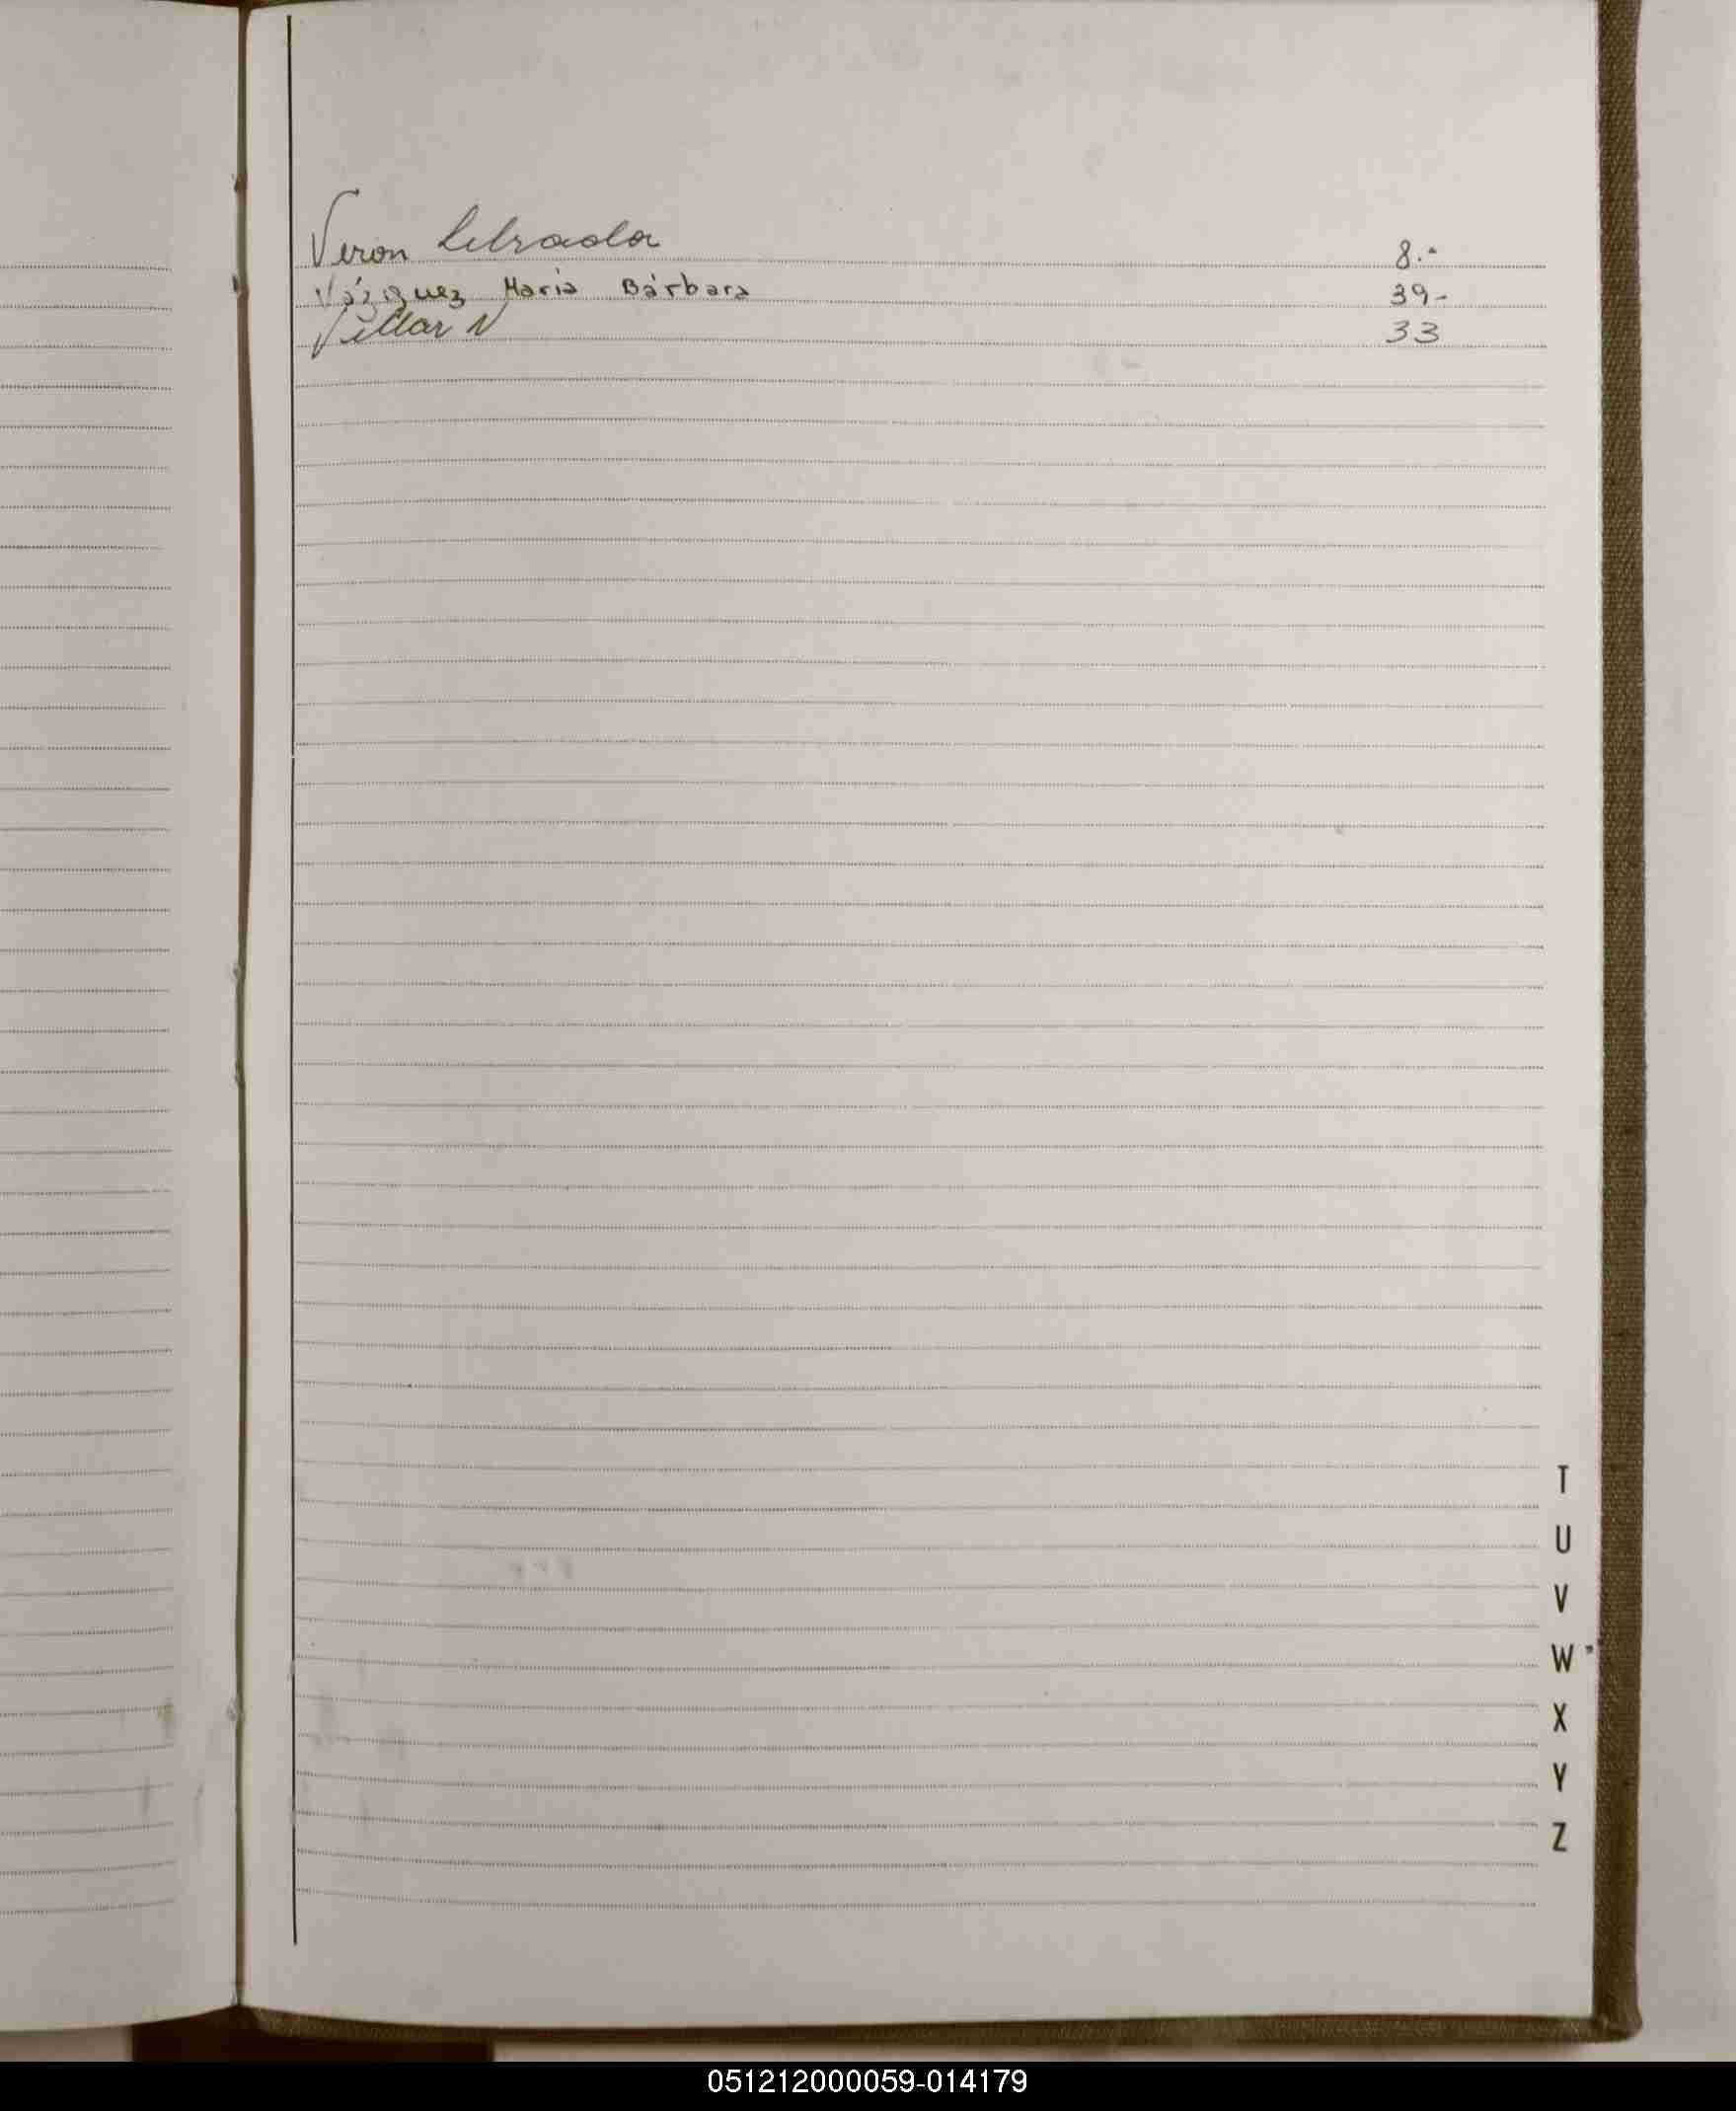 Veron Librada 8.-
Vázquez María Bárbara 39-
Villar N 33
T
U
V
W
X
Y
Z
051212000059-014179